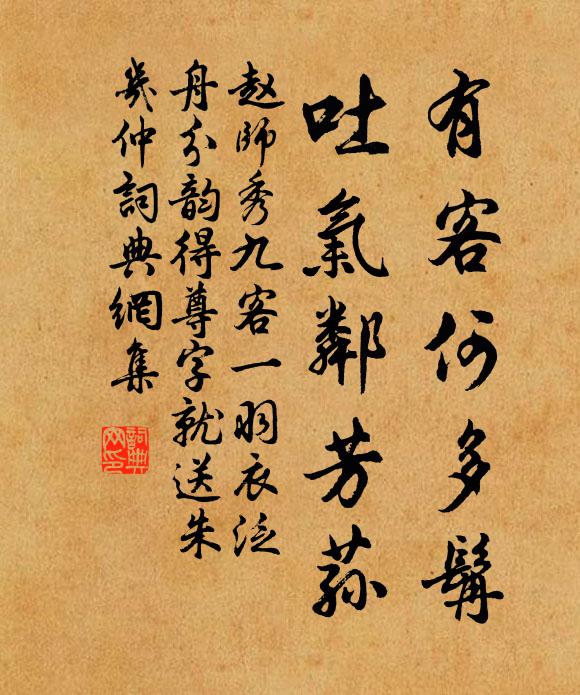 有客何多髯
吐氣鄰芳蓀
赵師秀九客一羽衣泛
舟分韵得尊字就送朱
幾仲詞典網集
詞典網印